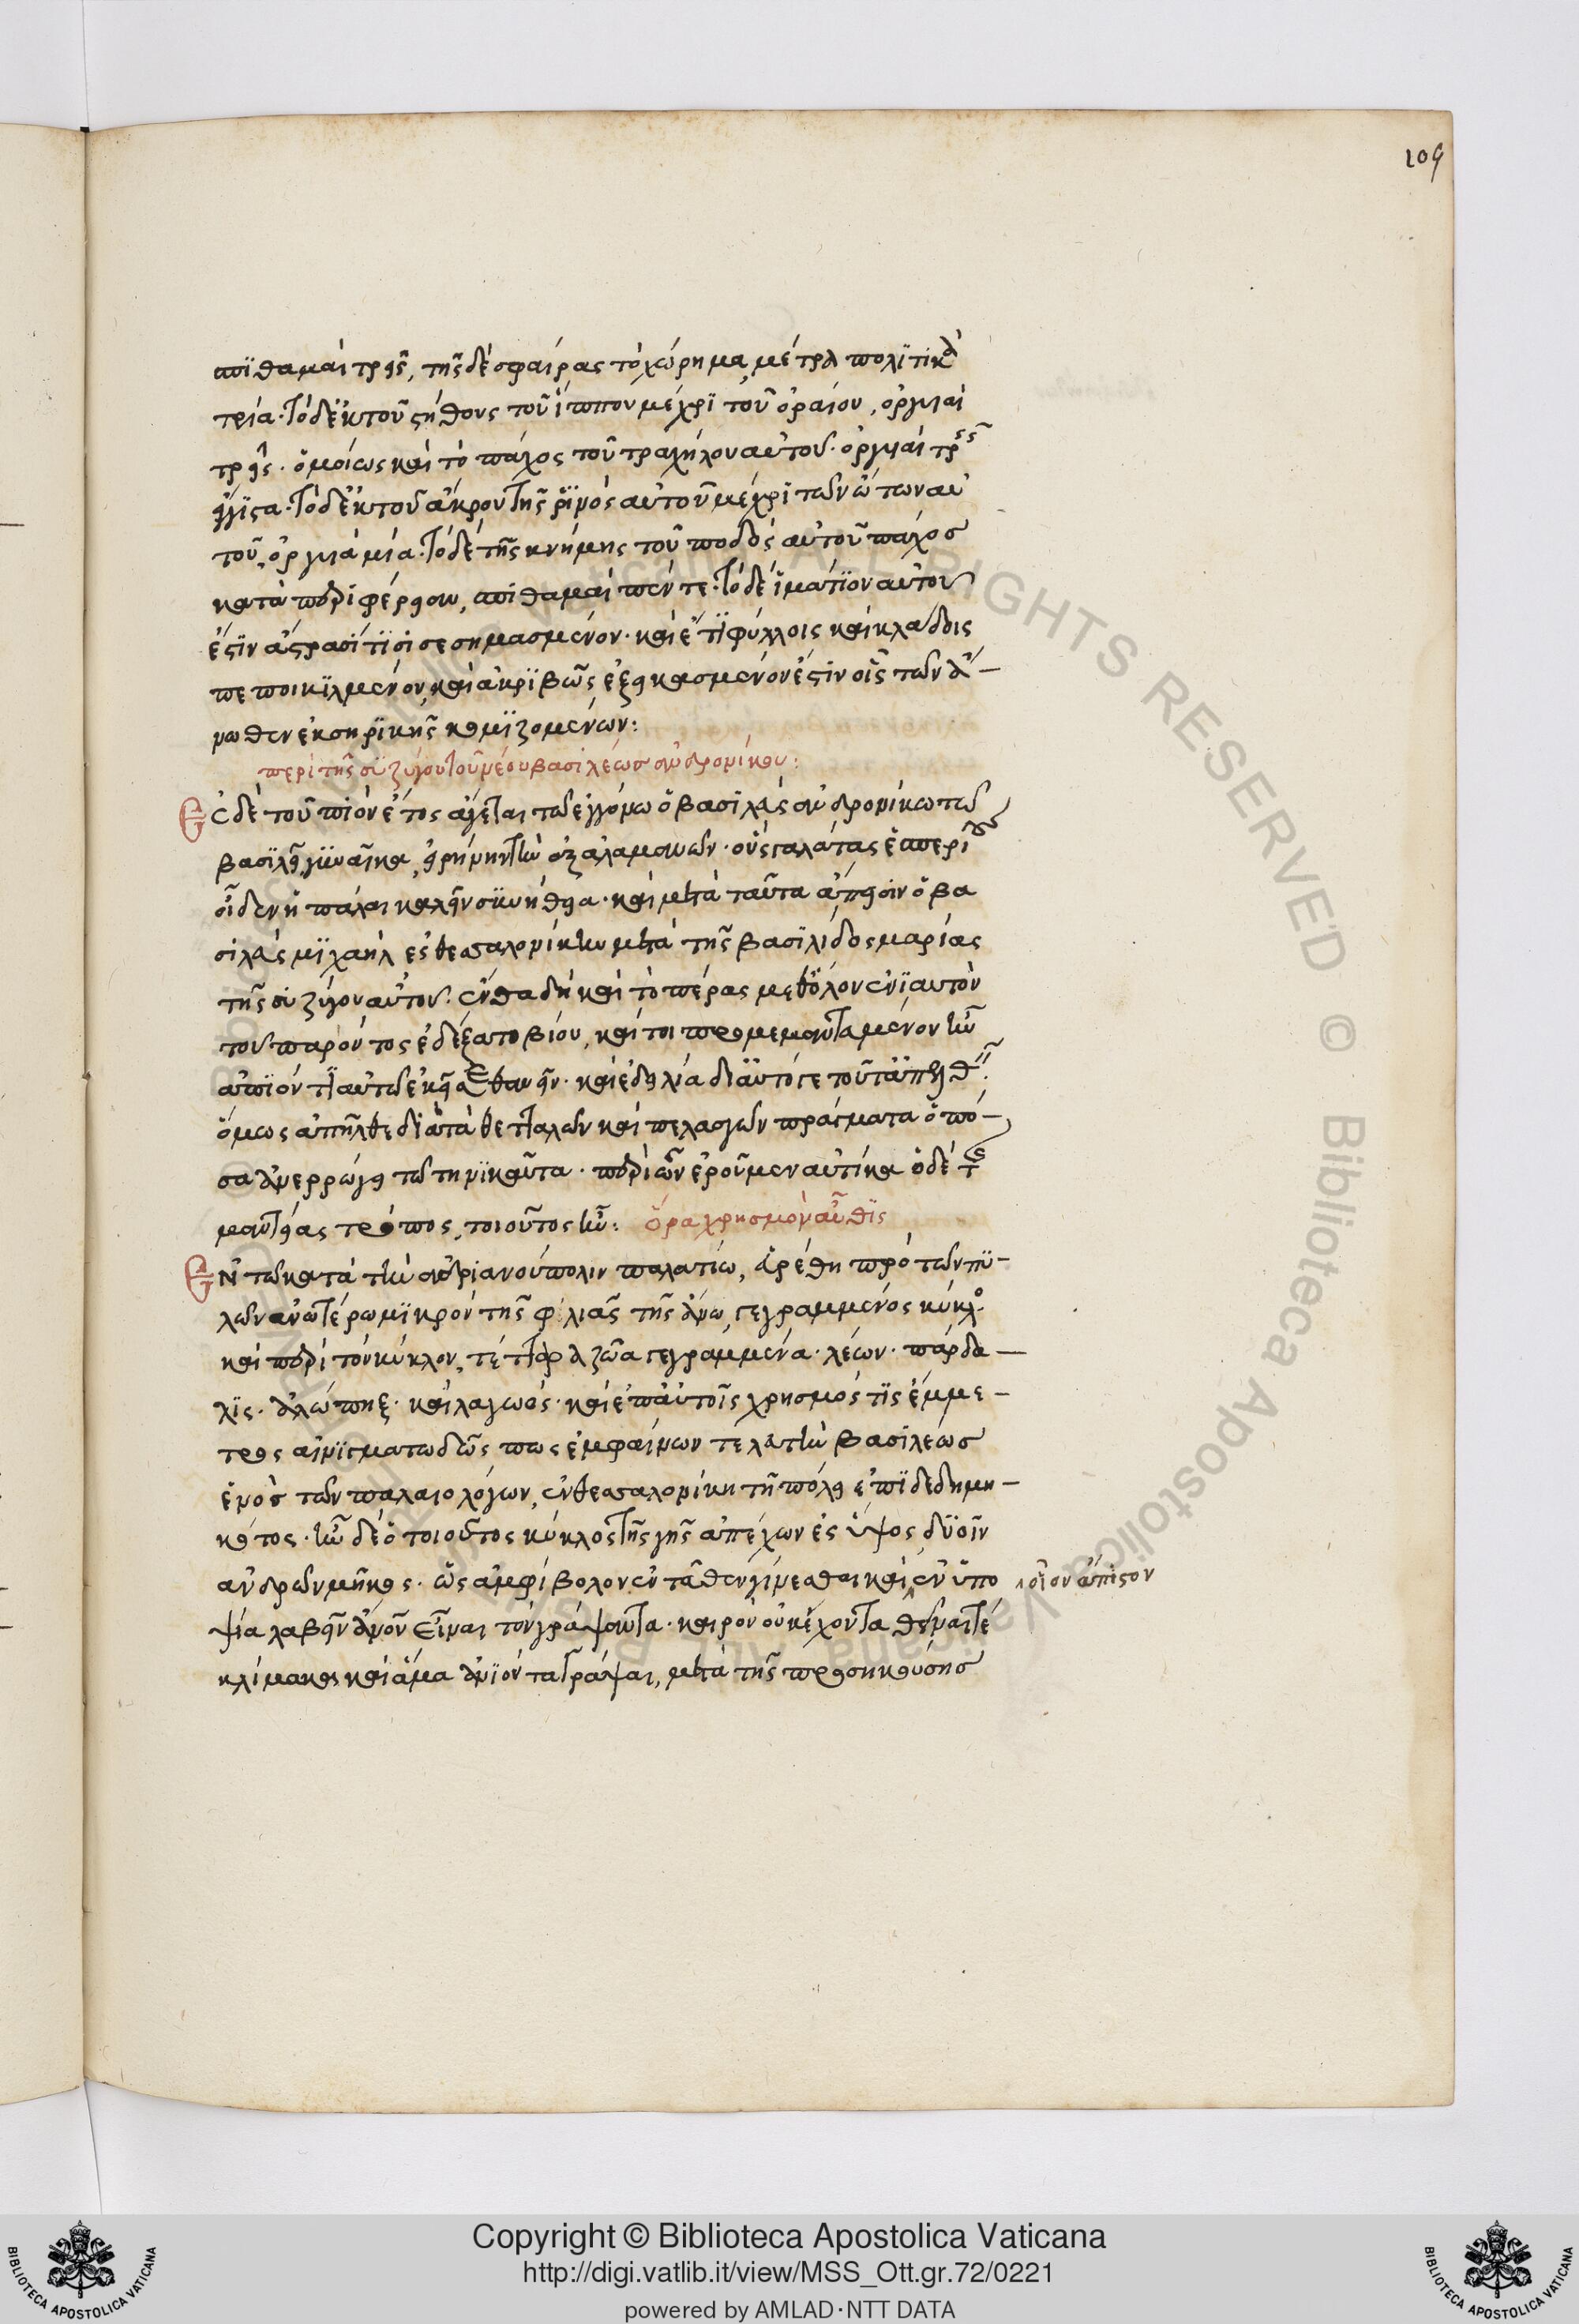 109
σπιθαμαὶ τρεῖς, τῆς δὲ σφαίρας τὸ χώρημα, μέτρα πολιτικὰ
τρία. τὸ δ' ἐκ τοῦ στήθους τοῦ ἵππου μέχρι τοῦ ὀραίου, ὀργυιαὶ
τρεῖς. ὁμοίως καὶ τὸ πάχος τοῦ τραχήλου αὐτοῦ. ὀργυιαὶ τρεῖς
ἔγιστα. τὸ δ' ἐκ τοῦ ἄκρου τῆς ῥινὸς αὐτοῦ μέχρι τῶν ὤτων αὐ
τοῦ, ὀργυιὰ μία. τὸ δὲ τῆς κνήμης τοῦ ποδὸς αὐτοῦ πάχος
κατὰ περιφέρειαν, σπιθαμαὶ πέντε. τὸ δὲ ἱμάτιον αὐτοῦ
ἐστὶν ἀστρασί τισι σεσημασμένον. καὶ ἔτι φύλλοις καὶ κλάδοις
πεποικιλμένον, καὶ ἀκριβῶς ἐξεικασμένον ἐστὶν οἷς τῶν ἄ-
νωθεν ἐκ σηρικῆς κομιζομένων:
περὶ τῆς συζύγου τοῦ νέου βασιλέως ἀνδρονίκου:
Ἐς δὲ τοὐπιὸν ἔτος ἄγεται τῶ ἐγγόνω ὁ βασιλεὺς ἀνδρονίκω τῶ
βασιλεῖ γυναῖκα, εἰρήνην τὴν ἐξ ἀλαμανῶν. οὓς γαλάτας ἑσπερί
οὓς οἶδεν ἡ πάλαι καλεῖν συνήθεια. καὶ μετὰ ταῦτα ἄπεισιν ὁ βα
σιλεὺς μιχαὴλ ἐς θεσσαλονίκην μετὰ τῆς βασιλίδος μαρίας
τῆς συζύγου αὐτοῦ. ἔνθα δὴ καὶ τὸ πέρας μεθ' ὅλον ἐνιαυτὸν
τοῦ παρόντος ἐδέξατο βίου, καί τοι προμεμαντευμένον ἦν
ἀπιόντι αὐτῶ ἐκεῖσε θανεῖν. καὶ ἐδειλία δι' αὐτό γε τοῦτ' ἀπελθεῖν.
ὅμως ἀπῆλθε διὰ τὰ θετταλῶν καὶ πελασγῶν πράγματα ὁπό-
σα ἀνερρώγει τῶ τηνικαῦτα. περὶ ὧν ἐροῦμεν αὐτίκα ὁ δὲ τῆς
μαντείας τρόπος, τοιοῦτος ἦν: ὅρα χρησμὸν αὖθις
Ἐν τῶ κατὰ τὴν ἀδριανούπολιν παλατίω, εὑρέθη πρὸ τῶν πυ-
λῶν ἀνωτέρω μικρὸν τῆς φλιᾶς τῆς ἄνω, γεγραμμένος κύκλος
καὶ περὶ τὸν κύκλον, τέτταρα ζῶα γεγραμμένα. λέων. πάρδα-
λις. ἀλώπηξ. καὶ λαγωός. καὶ ἐπ' αὐτοῖς χρησμός τις ἔμμε-
τρος αἰνιγματωδῶς πως ἐμφαίνων τελευτὴν βασιλέως
ἑνὸς τῶν παλαιολόγων, ἐν θεσσαλονίκη τῆ πόλει ἐπιδεδημη-
κότος. ἦν δὲ ὁ τοιοῦτος κύκλος τῆς γῆς ἀπέχων ἐς ὕψος δυοῖν
ἀνδρῶν μῆκος. ὡς ἀμφίβολον ἐνταῦθεν γίνεσθαι καὶ ἐν ὑπο
οἷον ἄπιστον
ψία λαβεῖν ἀνὸν εἶναι τὸν γράψαντα. καιρὸν οὐκ ἔχοντα θεῖναί τε
κλίμακα καὶ ἅμα ἀνιόντα γράψαι, μετὰ τῆς προσηκούσης
Copyright © Biblioteca Apostolica Vaticana
http://digi.vatlib.it/view/MSS_Ott.gr.72/0221
powered by AMLAD·NTT DATA